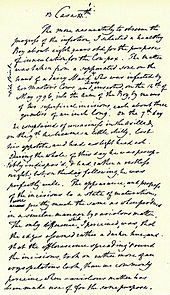 Case
The more accurately to observe the
progress of the infection, I selected a healthy
Boy about eight years old for the purpose
of inoculation for the Cow Pox. The matter
was taken from a suppurated sore on the
hand of a dairy Maid who was infected by
her masters Cows and inserted on the 14th of
May 1796 into the arm of the Boy by means
of two superficial incisions, each about three
quarters of an inch long. On the 7th day
he complained of uneasiness in the axilla,
on the 9th he became a little chilly, lost
his appetite and had a slight head ach.
During the whole of this day he was percep-
tibly indisposed, & had rather a restless
night; but on the day following he was
perfectly well. The appearance and progress
of the incisions to a state of maturation
were pretty much the same as when produced
in a similar manner by variolous matter.
The only difference I perceived was that
the edges assumed rather a darker hue, and
that the efflorescence spreading round
the incisions took on rather more of an
erysipelatous look, than we commonly
perceive when variolous matter has
been made use of for the same purpose.